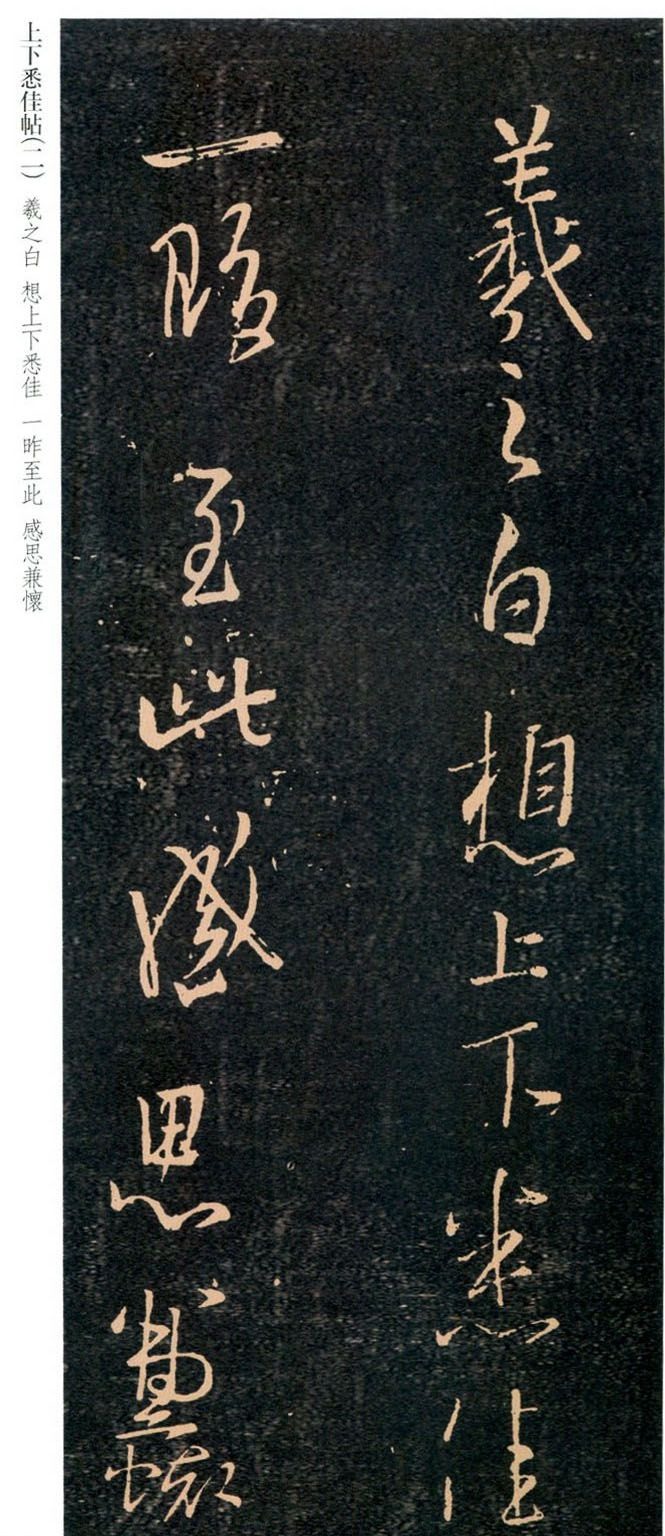 羲之白想上下悉佳
一昨至此感思兼懷
上下悉佳帖(二) 羲之白 想上下悉佳 一昨至此 感思兼懷